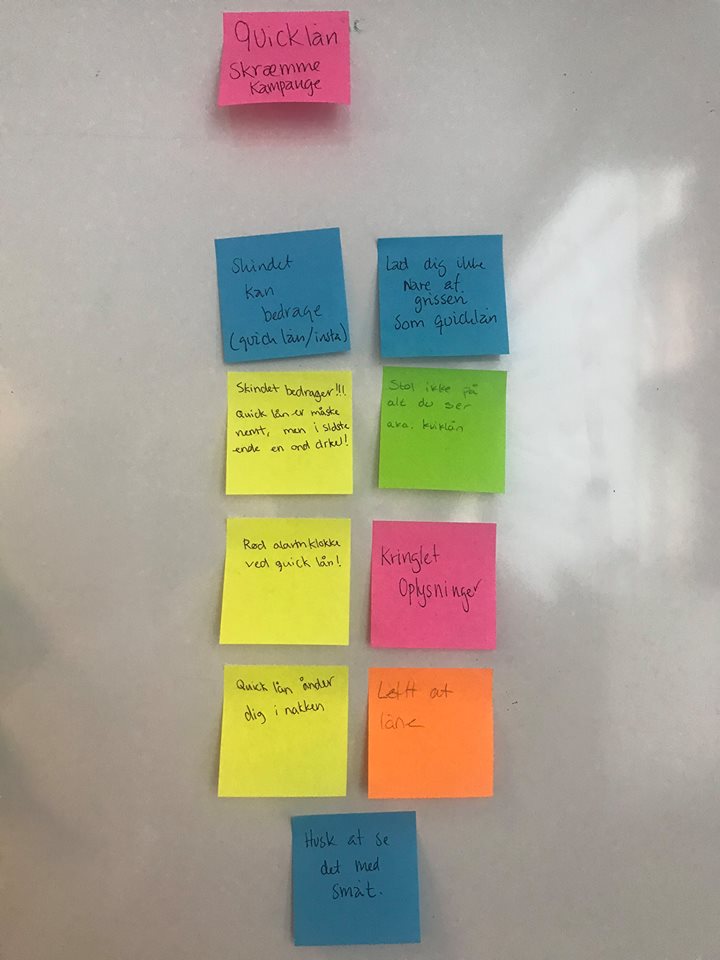 Quicklån
Skræmme
Kampange
Skindet
kan
bedrage
(quick lån/insta)
Lad dig ikke
Nare af
grissen
som quicklån
Skindet bedrager!!!
Quick lån er måske
nemt, men i sidste
ende en ond cirkel!
Stol ikke på
alt du ser
aka. kviklån
Rød alarmklokke
ved quick lån!
Kringlet
Oplysninger
Quick lån ånder
dig i nakken
Lett at
låne
Husk at se
det med
småt.